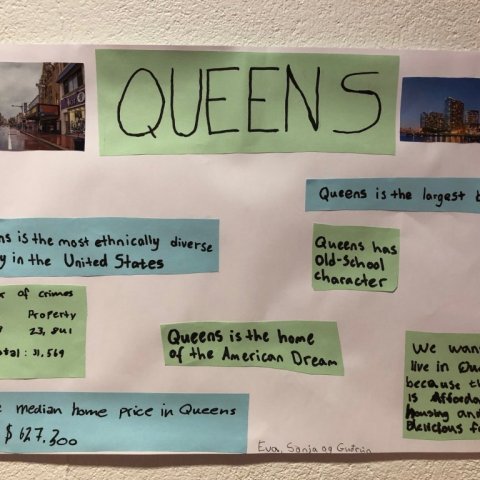 QUEENS
Queens is the largest b
ns is the most ethnically diverse
y in the United States
Queens has
old-school
character
r of crimes
Property
23,841
otal: 31,569
Queens is the home
of the American Dream
We wan
live in Que
because th
is Affordab
Housing and
Delicious fo
e median home price in Queens
$ 627.300
Eva, Sonja og Guðrún